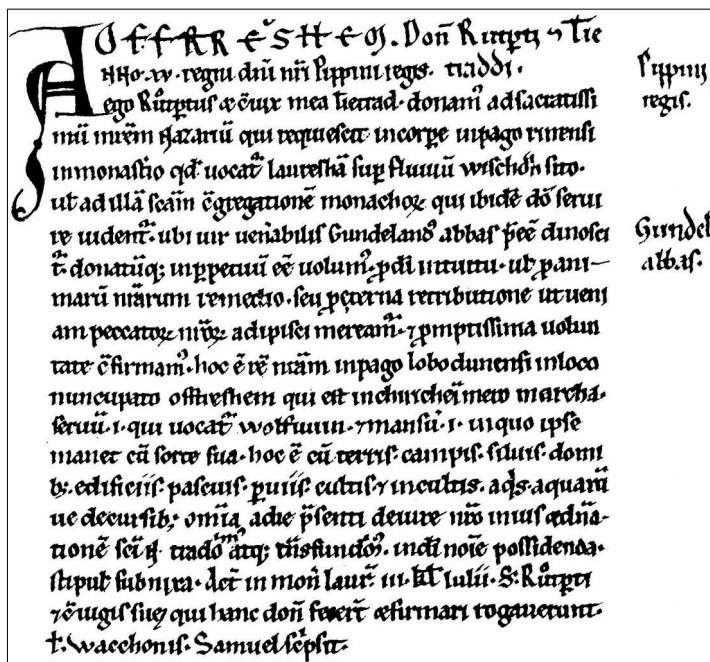 OFFRESHEM. Don̄ Ruotp̄ti ⁊ Tie
ANNO. xv. regni dn̄i nr̄i Pippini regis. traddi.
ego Ruotp̄tus & c̄iux mea tietrad. donam᷒ ad sacratissi
mū mr̄em Nazariū qui requiescit in corpe in pago rinensi
in monast̄io qd̄ uocat᷑ lauresha᷒̄ sup fluuiū wischōh sito.
ut ad illā sc̄am c̄gregationē monachoꝝ qui ibidē dō serui
re uident᷑. ubi uir ueñabilis Gundeland᷒ abbas p̄eē dinosci
t᷑. donatūq; inꝑpetuū eē uolum᷒. ꝓdī intuitu. ut ꝓ ani
marū nr̄arum remedio. seu ꝓ &erna retributione ut ueni
am peccatoꝝ nr̄oꝝ adipisci meream᷑. ⁊ ꝓmptissima uolun
tate c̄firmam᷒. hoc ē rē nr̄am in pago lobodunensi in loco
nuncupato offreshem qui est in chirchēimero marcha.
seruū. i. qui uocat᷑ wolfuuin. ⁊ mansū. i. in quo ipse
manet cū sorte sua. hoc ē cū terris. campis. siluis. domi
b; edificiis. pascuis. ꝑuiis. cultis. ⁊ incultis. aq̄s. aquarū
ue decursib; om̄ia a die p̄senti de iure nr̄o in ius & dn̄a
tionē sc̄i N̄ tradom᷒ atq; tn̄sfundom᷒. in dī noīe possidenda.
stipul̄ subnixa. Act̄ in mon̄ laur̄ iii. kl̄ Iulii. S. Ruotp̄ti
⁊ c̄iugis suę qui hanc don̄ fecer̄t & firmari rogauerunt.
t̄. Wacchonis. Samuel sc̄psit.
Pippini
regis.
Gundel
abbas.